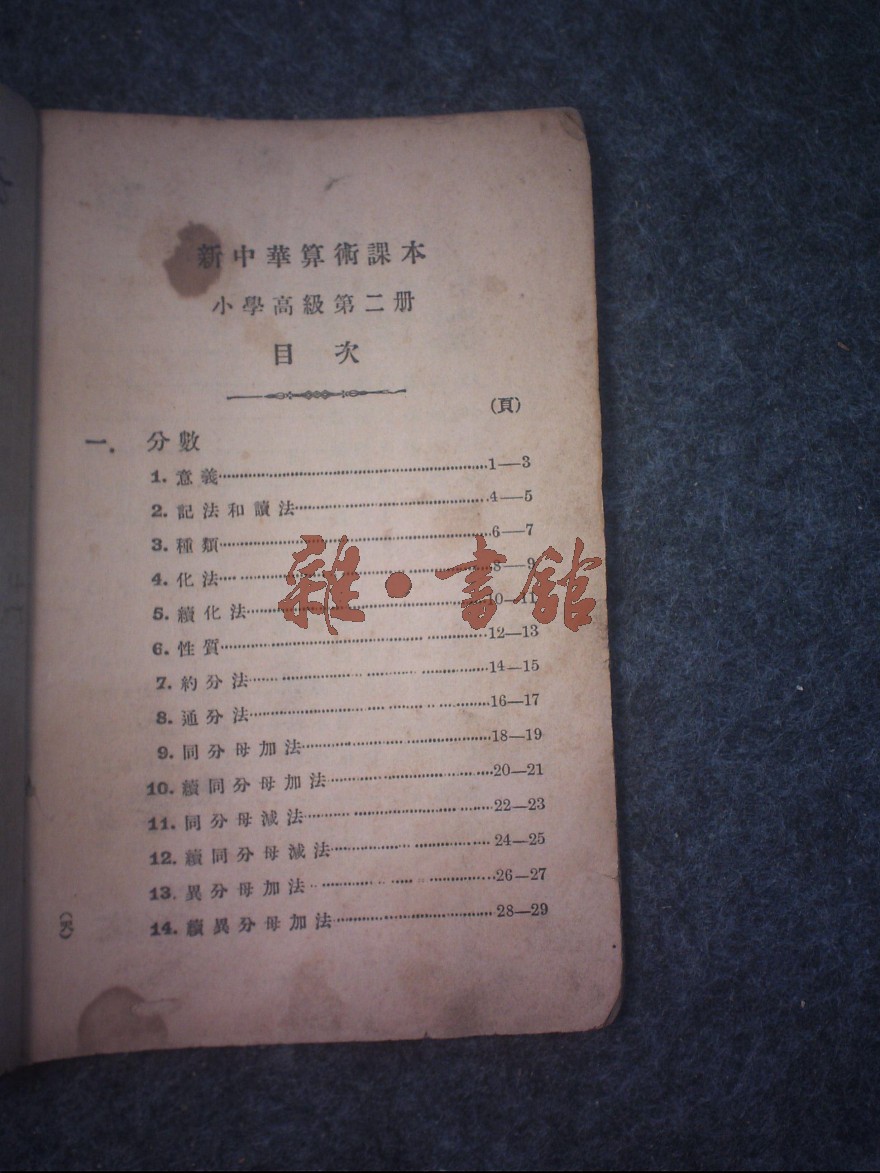 新中華算術課本
小學高級第二册
目 次
(頁)
一. 分數
1. 意義……1—3
2. 記法和讀法……4—5
3. 種類……6—7
4. 化法……8—9
5. 續化法……10—11
6. 性質……12—13
7. 約分法……14—15
8. 通分法……16—17
9. 同分母加法……18—19
10. 續同分母加法……20—21
11. 同分母減法……22—23
12. 續同分母減法……24—25
13. 異分母加法……26—27
14. 續異分母加法……28—29
雜·書館